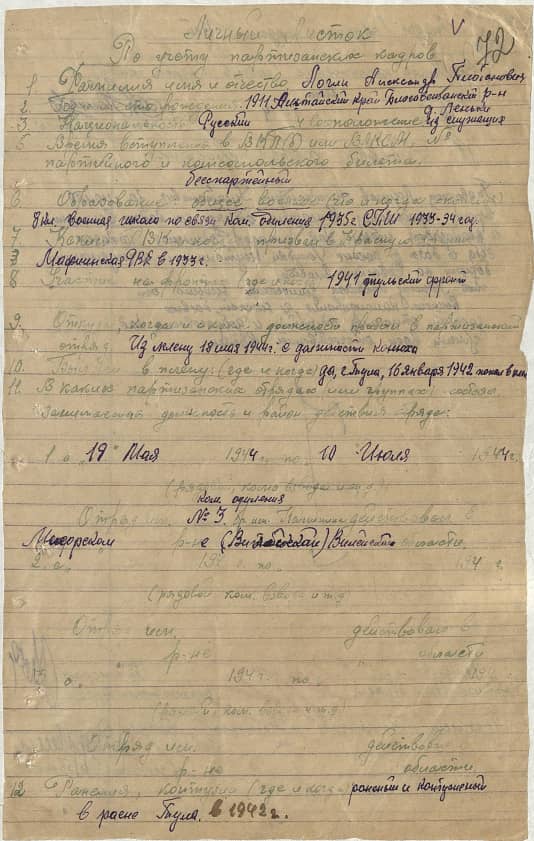 72
Личный Листок
По учету партизанских кадров
1 Фамилия имя и отчество Логли Александр
2. 1911 Алтайский край р-н
3. Национальность Русский 4 из служащих
5 Время вступления в ВКП(б) или ВЛКСМ, №
партийного и комсомольского билета.
беспартийный
6 Образование: общее военное (что и когда
8 кл. военная школа по связи ком. отделения 1935г. 1933-34 год.
7 Каким РВК когда призван в Красную
РВК в 1933 г.
8 Участие на фронтах (где и когда) 1941 Тульский фронт
9. Откуда когда и с какой должности прибыл в партизанский
отряд Из плену 18 мая 1944г. с должности конюха
10. в плену: (где и когда) да, г. Тула, 16 января 1942 попал в плен
11. В каких партизанских отрядах (или группах) состоял
занимаемая должность и район действия отряда:
1 с "19" Мая 1944 г. по "10" Июля 1944г.
(рядовой, ком. взвода и т.д.)
ком. отделения
Отряд им. № 3 действовал
р-не Вилейской области
2. с. 194 г. по 194 г.
(рядовой ком. взвода и т.д)
Отряд им. действовал в
р-не области
3 с. 194 г. по 194
(рядовой ком. взвода и т.д)
Отряд им. действовал
р-не области.
12 Ранения, контузии (где и когда) раненый и контуженый
в раене Тула. в 1942 г.